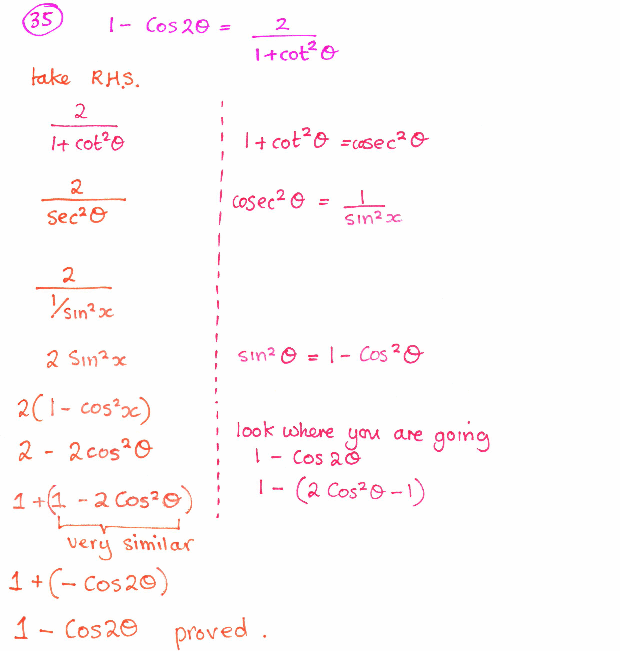 35 1 - Cos2θ = 2/(1+cot²θ)
take R.H.S.
2/(1+cot²θ) 1+cot²θ = cosec²θ
2/sec²θ cosec²θ = 1/sin²x
2/(1/sin²x)
2 Sin²x sin²θ = 1 - Cos²θ
2(1 - cos²x)
2 - 2cos²θ
look where you are going
1 - Cos2θ
1 - (2Cos²θ-1)
1+(1 - 2Cos²θ)
very similar
1+(-Cos2θ)
1 - Cos2θ proved.